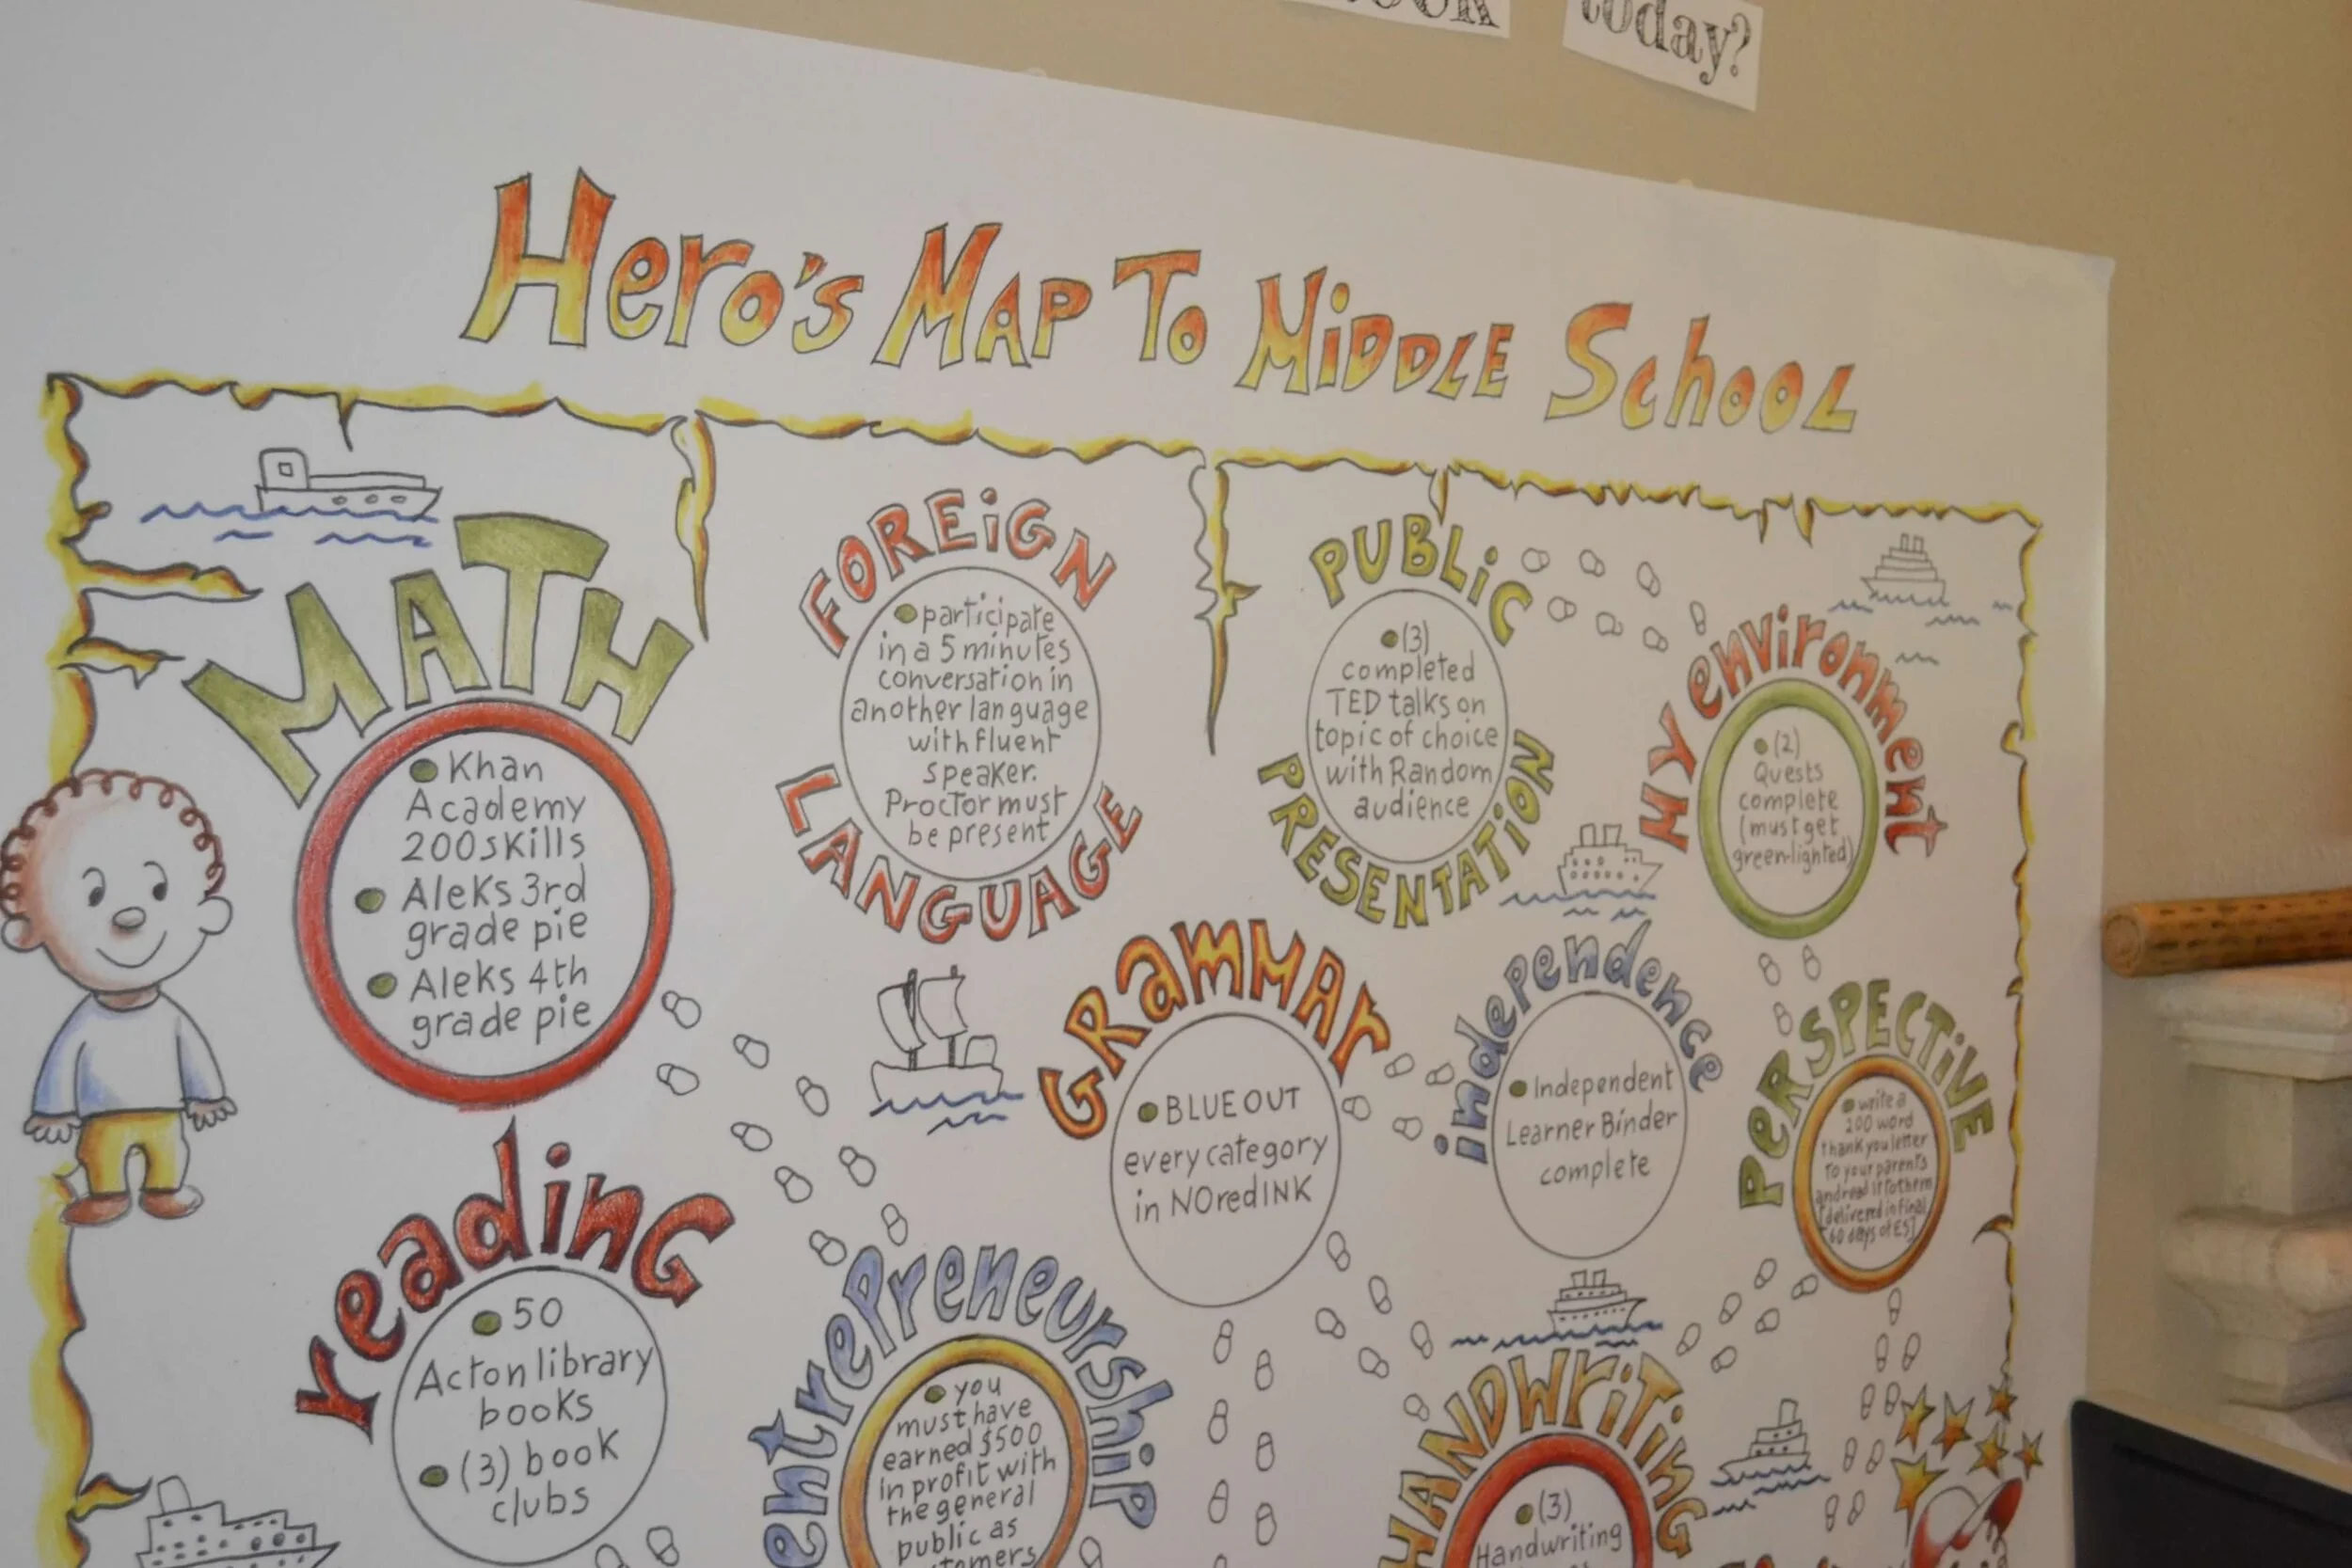 today?
Hero's Map To Middle School
MATH
Khan
Academy
200 skills
Aleks 3rd
grade pie
Aleks 4th
grade pie
FOREIGN
participate
in a 5 minutes
conversation in
another language
with fluent
speaker.
Proctor must
be present
LANGUAGE
PUBLIC
(3)
completed
TED talks on
topic of choice
with Random
audience
PRESENTATION
MY environment
(2)
Quests
complete
(must get
green-lighted)
GRammar
BLUE OUT
every category
in NOredINK
independence
Independent
Learner Binder
complete
PeRSPECTiVE
write a
200 word
thank you letter
to your parents
and read it to them
[delivered in final
60 days of ES]
reading
50
Acton library
books
(3) book
clubs
entrepreneurship
you
must have
earned $500
in profit with
the general
public as
HANDWRiTing
(3)
Handwriting